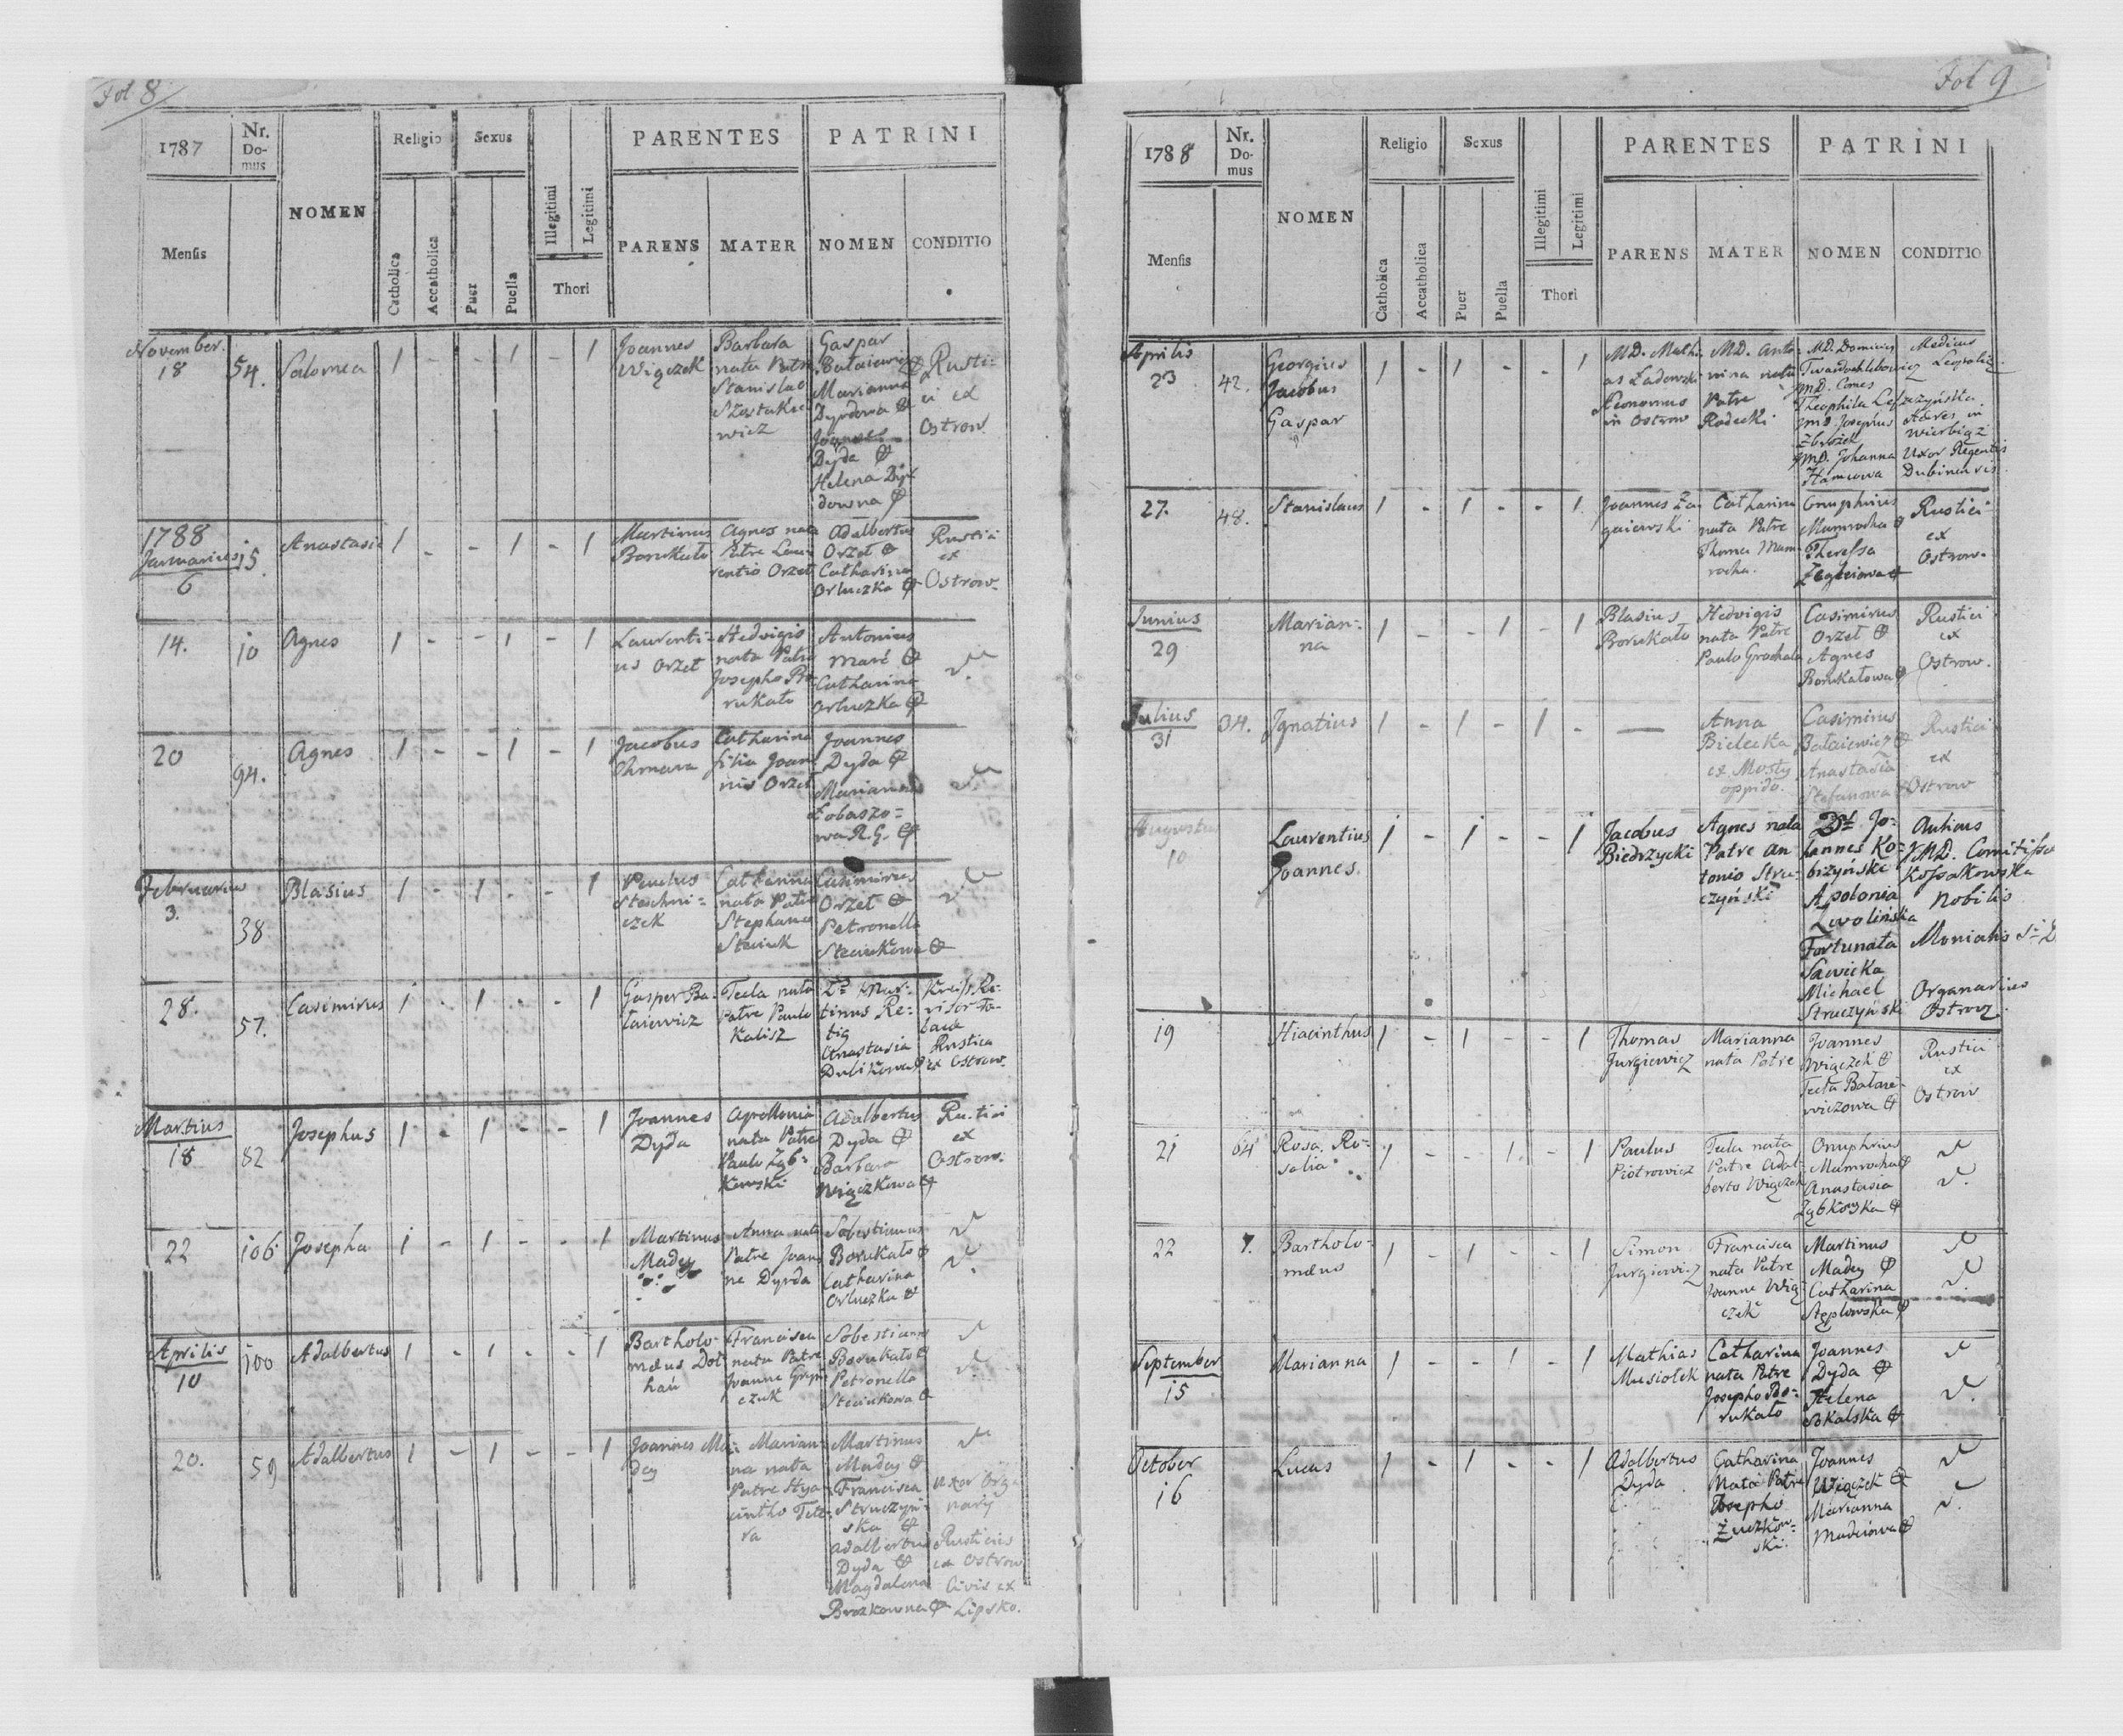 Fol 8
1787
Nr. Domus
NOMEN
Religio
Sexus
PARENTES
PATRINI
Mensis
Catholica
Accatholica
Puer
Puella
Illegitimi
Legitimi
Thori
PARENS
MATER
NOMEN
CONDITIO
November 18 54. Salomea 1 - - 1 - 1
Joannes
Wiączek
Barbara
nata Patre
Stanislao
Szostakie
wicz
Gaspar
Bałaiewicz
Marianna
Dyrdowa
Joannes
Dyda
Helena Dyr
downa
Rusti-
ci ex
Ostrow
1788
Januarius 6 15. Anastasia 1 - - 1 - 1
Martinus
Borukało
Agnes nata
Patre Lau
rentio Orzeł
Adalbertus
Orzeł
Catharina
Orłuczka
Rustici
ex
Ostrow.
14. 10 Agnes 1 - - 1 - 1
Laurenti-
us Orzeł
Hedvigis
nata Patre
Josepho Bo
rukało
Antonius
Marć
Catharina
Orłuczka
20 94. Agnes 1 - - 1 - 1
Jacobus
Chmara
Catharina
filia Joan
nis Orzeł
Joannes
Dyda
Marianna
Łobaszo-
wa R. G.
Februarius 3. 38 Blasius 1 - 1 - - 1
Paulus
Catharina
nata Patre
Stephano
Steciuk
Casimirus
Orzeł
Petronella
Steciukowa
28. 57. Casimirus 1 - 1 - - 1
Gasper Ba-
łaiewicz
Tecla nata
Patre Paulo
Kalisz
tinus Re-
tig
Anastasia
Dubikowa
Rustica
ex Ostrow.
Martius 18 82 Josephus 1 - 1 - - 1
Joannes
Dyda
Apollonia
nata Patre
Paulo Ząb-
kowski
Adalbertus
Dyda
Barbara
Wiączkowa
Rustici
ex
Ostrow.
22 106 Josepha 1 - 1 - - 1
Martinus
Madey
Anna nata
Patre Joan
ne Dyrda
Sobestianus
Borukało
Catharina
Orłuczka
Aprilis 10 100 Adalbertus 1 - 1 - - 1
Bartholo-
mæus Doł
hań
Francisca
nata Patre
Joanne
Sobestianus
Borukało
Petronella
Steciukowa
20. 59 Adalbertus 1 - 1 - - 1
Joannes Ma-
dey
Marian-
na nata
Patre Hya
cintho
Martinus
Madey
Francisca
Struczyń-
ska
Adalbertus
Dyda
Magdalena
Brozkowna
Uxor Orga
narij
Rusticus
ex Ostrow
Civis ex
Lipsko.
Fol 9
1788
Nr. Domus
NOMEN
Religio
Sexus
PARENTES
PATRINI
Mensis
Catholica
Accatholica
Puer
Puella
Illegitimi
Legitimi
Thori
PARENS
MATER
NOMEN
CONDITIO
Aprilis 23 42. Georgius
Jacobus
Gaspar
1 - 1 - - 1
MD. Mathi
as Zadowski
Æconomus
in Ostrow
MD. Anto-
nina nata
Patre
Radecki
MD. Dominicus
Twardochlebowicz
MD. Comes
Theophila
Josephus
Zbrożek
MD. Johanna
Medicus
Leopoliensis
Uxor Regentis
Dubinensis
27. 48. Stanislaus 1 - 1 - - 1
Joannes Za
gaiewski
Catharina
nata Patre
Thoma Mam-
rocha.
Onuphrius
Mamrocha
Theressa
Rustici
ex
Ostrow.
Junius 29 Marian-
na
1 - - 1 - 1
Blasius
Borukało
Hedvigis
nata Patre
Paulo Grochala
Casimirus
Orzeł
Agnes
Borukałowa
Rustici
ex
Ostrow.
Julius 31 34. Ignatius 1 - 1 - 1 -
Anna
Bielecka
ex Mosty
oppido.
Casimirus
Bałaiewicz
Anastasia
Stefanowa
Rustici
ex
Ostrow
Augustus 10 Laurentius
Joannes.
1 - 1 - - 1
Jacobus
Biedrzycki
Agnes nata
Patre An
tonio Stru-
czyński
Jo-
hannes Ko-
bizyński
Apolonia
Zwolińska
Fortunata
Sawicka
Michael
Struczyński
Aulicus
MD. Comitissæ
Kossakowska
Nobilis
Monialis
Organarius
Ostrow
19 Hiacinthus 1 - 1 - - 1
Thomas
Jurgiewicz
Marianna
nata Patre
Joannes
Wiączek
Tecla Bałaie-
wiczowa
Rustici
ex
Ostrow
21 64 Rosa Ro-
salia
1 - - 1 - 1
Paulus
Piotrowicz
Tecla nata
Patre Adal-
berto Wiączek
Onuphrius
Mamrocha
Anastasia
Ząbkowska
22 7. Bartholo-
mæus
1 - 1 - - 1
Simon
Jurgiewicz
Francisca
nata Patre
Joanne Wią-
czek
Martinus
Madey
Catharina
Stęplowska
September 15 Marianna 1 - - 1 - 1
Mathias
Musiolek
Catharina
nata Patre
Josepho Bo-
rukało
Joannes
Dyda
Helena
Sokalska
October 16 Lucas 1 - 1 - - 1
Adalbertus
Dyda
Catharina
Nata Patre
Josepho
Żuczkow-
ski.
Joannes
Wiączek
Marianna
Madeiowa